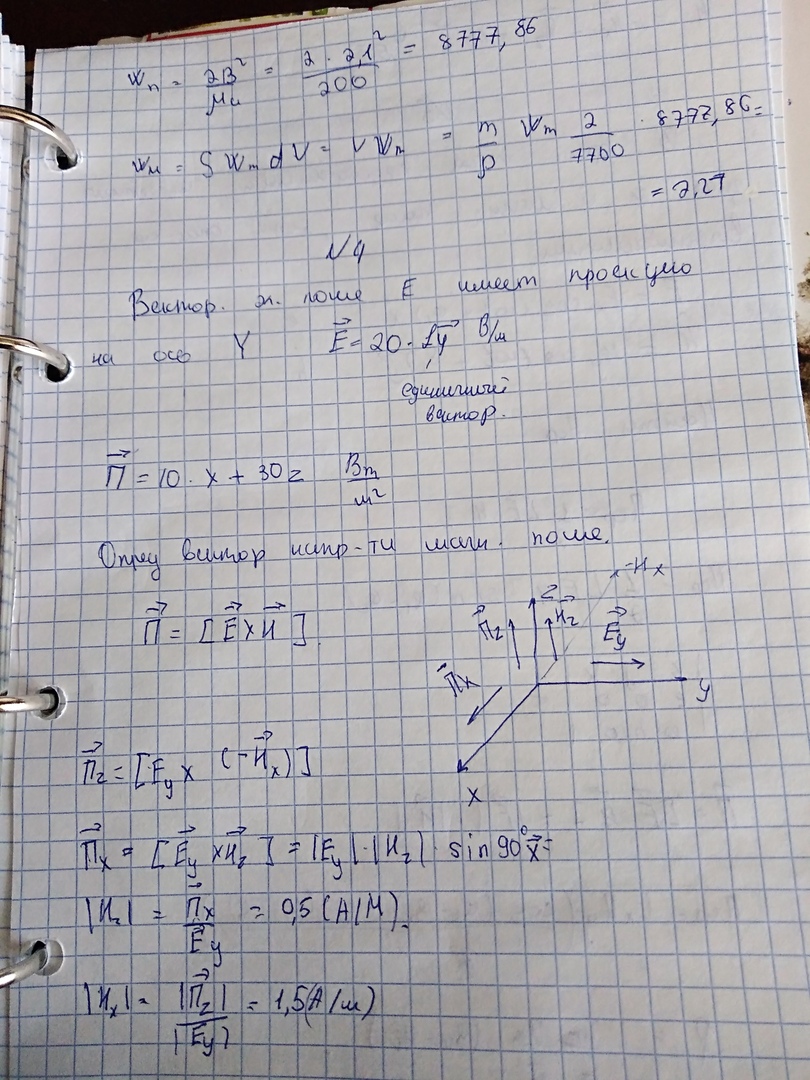 Wп = 2B² / μμ = 2 · 2,1² / 200 = 8777,86
Wм = ∫ Wm dV = V Wm = m/ρ Wm 2/7700 · 8777,86 =
= 2,27
N4
Вектор. эл. поле E имеет проекцию
на ось Y E⃗ = 20 · 1y⃗ В/м
единичный
вектор.
П⃗ = 10 · x + 30z Вт/м²
Опред вектор напр-ти магн. поле.
-Hx
z
П⃗z H⃗z E⃗y
П⃗ = [E⃗ × H⃗].
П⃗x
y
П⃗z = [Ey × (-H⃗x)]
x
П⃗x = [E⃗y × H⃗z] = |Ey| · |Hz| · sin 90° x⃗ =
|Hz| = П⃗x / E⃗y = 0,5 (А/М).
|Hx| = |П⃗z| / |E⃗y| = 1,5 (А/м)